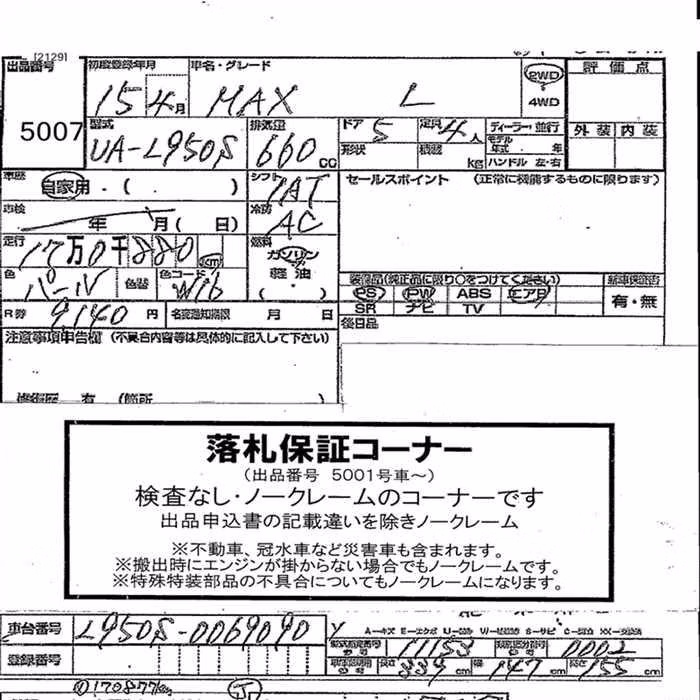 [2129]
出品番号 初度登録年月 車名・グレード 2WD 評価点
15 4月 MAX L 4WD
5007 型式 排気量 ドア 5 定員 4人 ディーラー・並行 外装 内装
UA-L950S 660cc 形状 積載 kg モデル年式 . 年 ハンドル 左・右
車歴 自家用・( . ) シフト IAT セールスポイント (正常に機能するものに限ります)
車検 年 月( 日) 冷房 AC
走行 17万0千220km 燃料 ガソリン
色 パール 色替 色コード W16 軽油 ( . )
装備品(純正品に限り○をつけてください) 新車保証書
PS PW ABS エアB 有・無
SR ナビ TV
R券 9140円 名変通知期限 月 日 後日品
注意事項申告欄 (不具合内容等は具体的に記入して下さい)
修復歴 有 (箇所
落札保証コーナー
(出品番号 5001号車～)
検査なし・ノークレームのコーナーです
出品申込書の記載違いを除きノークレーム
※不動車、冠水車など災害車も含まれます。
※搬出時にエンジンが掛からない場合でもノークレームです。
※特殊特装部品の不具合についてもノークレームになります。
車台番号 L950S-0069090
登録番号 長さ 339cm 幅 147cm 高さ 155cm